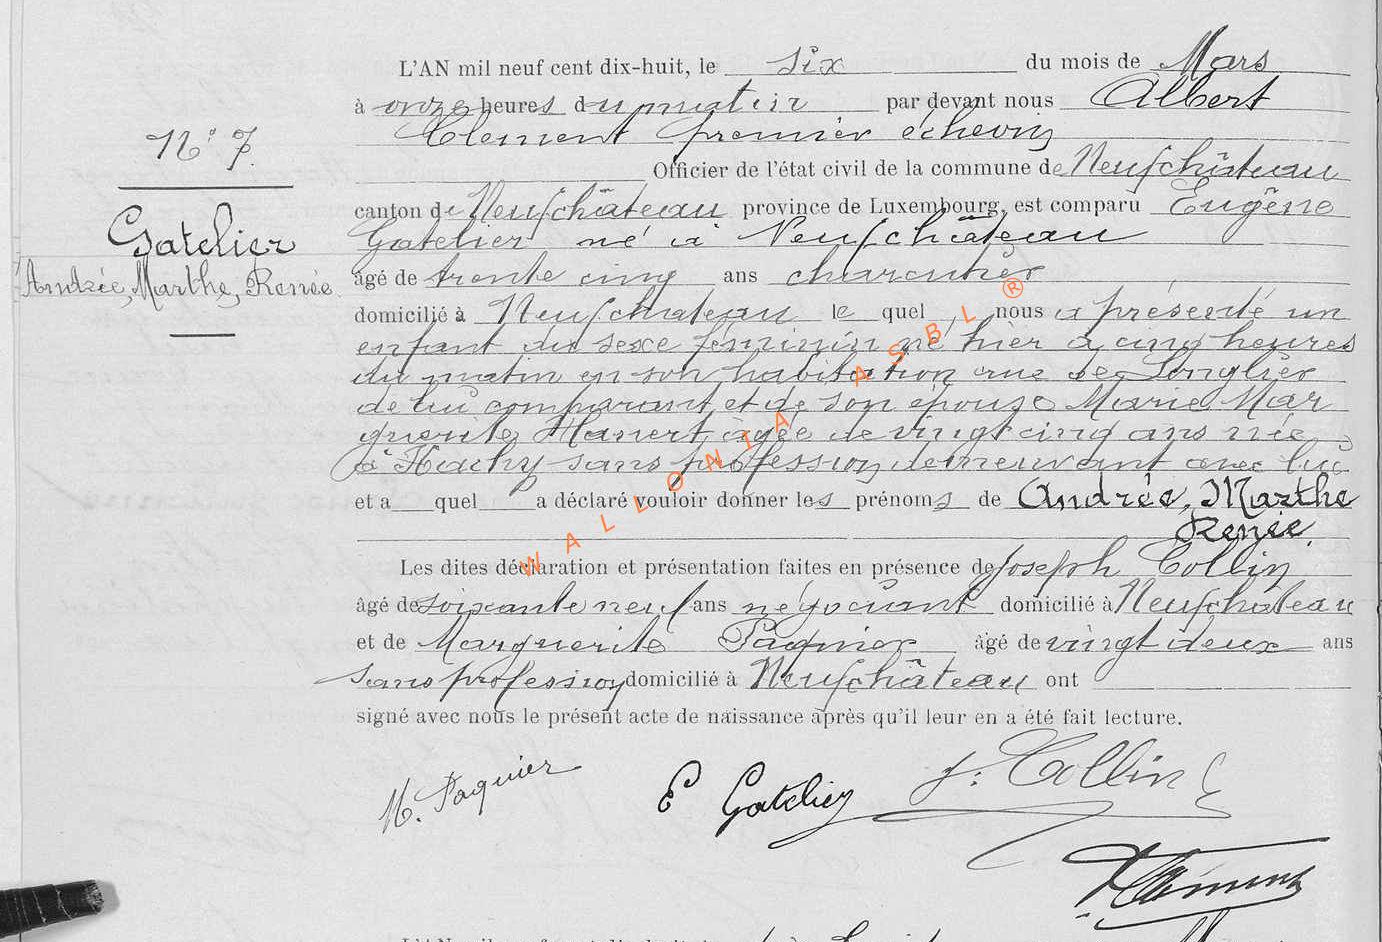 L'AN mil neuf cent dix-huit, le six du mois de Mars
à onze heures du matin par devant nous Albert
Clement premier échevin
Officier de l'état civil de la commune de Neufchâteau
canton de Neufchâteau province de Luxembourg, est comparu Eugène
Gatelier né à Neufchâteau
âgé de trente cinq ans charcutier
domicilié à Neufchateau le quel nous a présenté un
enfant du sexe féminin né hier à cinq heures
du matin en son habitation rue de Longlier
de lui comparant et de son épouse Marie Mar
guerite Hanert âgée de vingt cinq ans née
à Hachy sans profession demeurant avec lui
et a quel a déclaré vouloir donner les prénoms de Andrée, Marthe
Renée.
Les dites déclaration et présentation faites en présence de Joseph Collin
âgé de soixante neuf ans négociant domicilié à Neufchateau
et de Marguerite Paquier âgé de vingt deux ans
sans profession domicilié à Neufchâteau ont
signé avec nous le présent acte de naissance après qu'il leur en a été fait lecture.
N° 7.
Gatelier
Andrée, Marthe, Renée.
M. Paquier
E Gatelier
J. Collin
Clément
WALLONIA ASBL ®